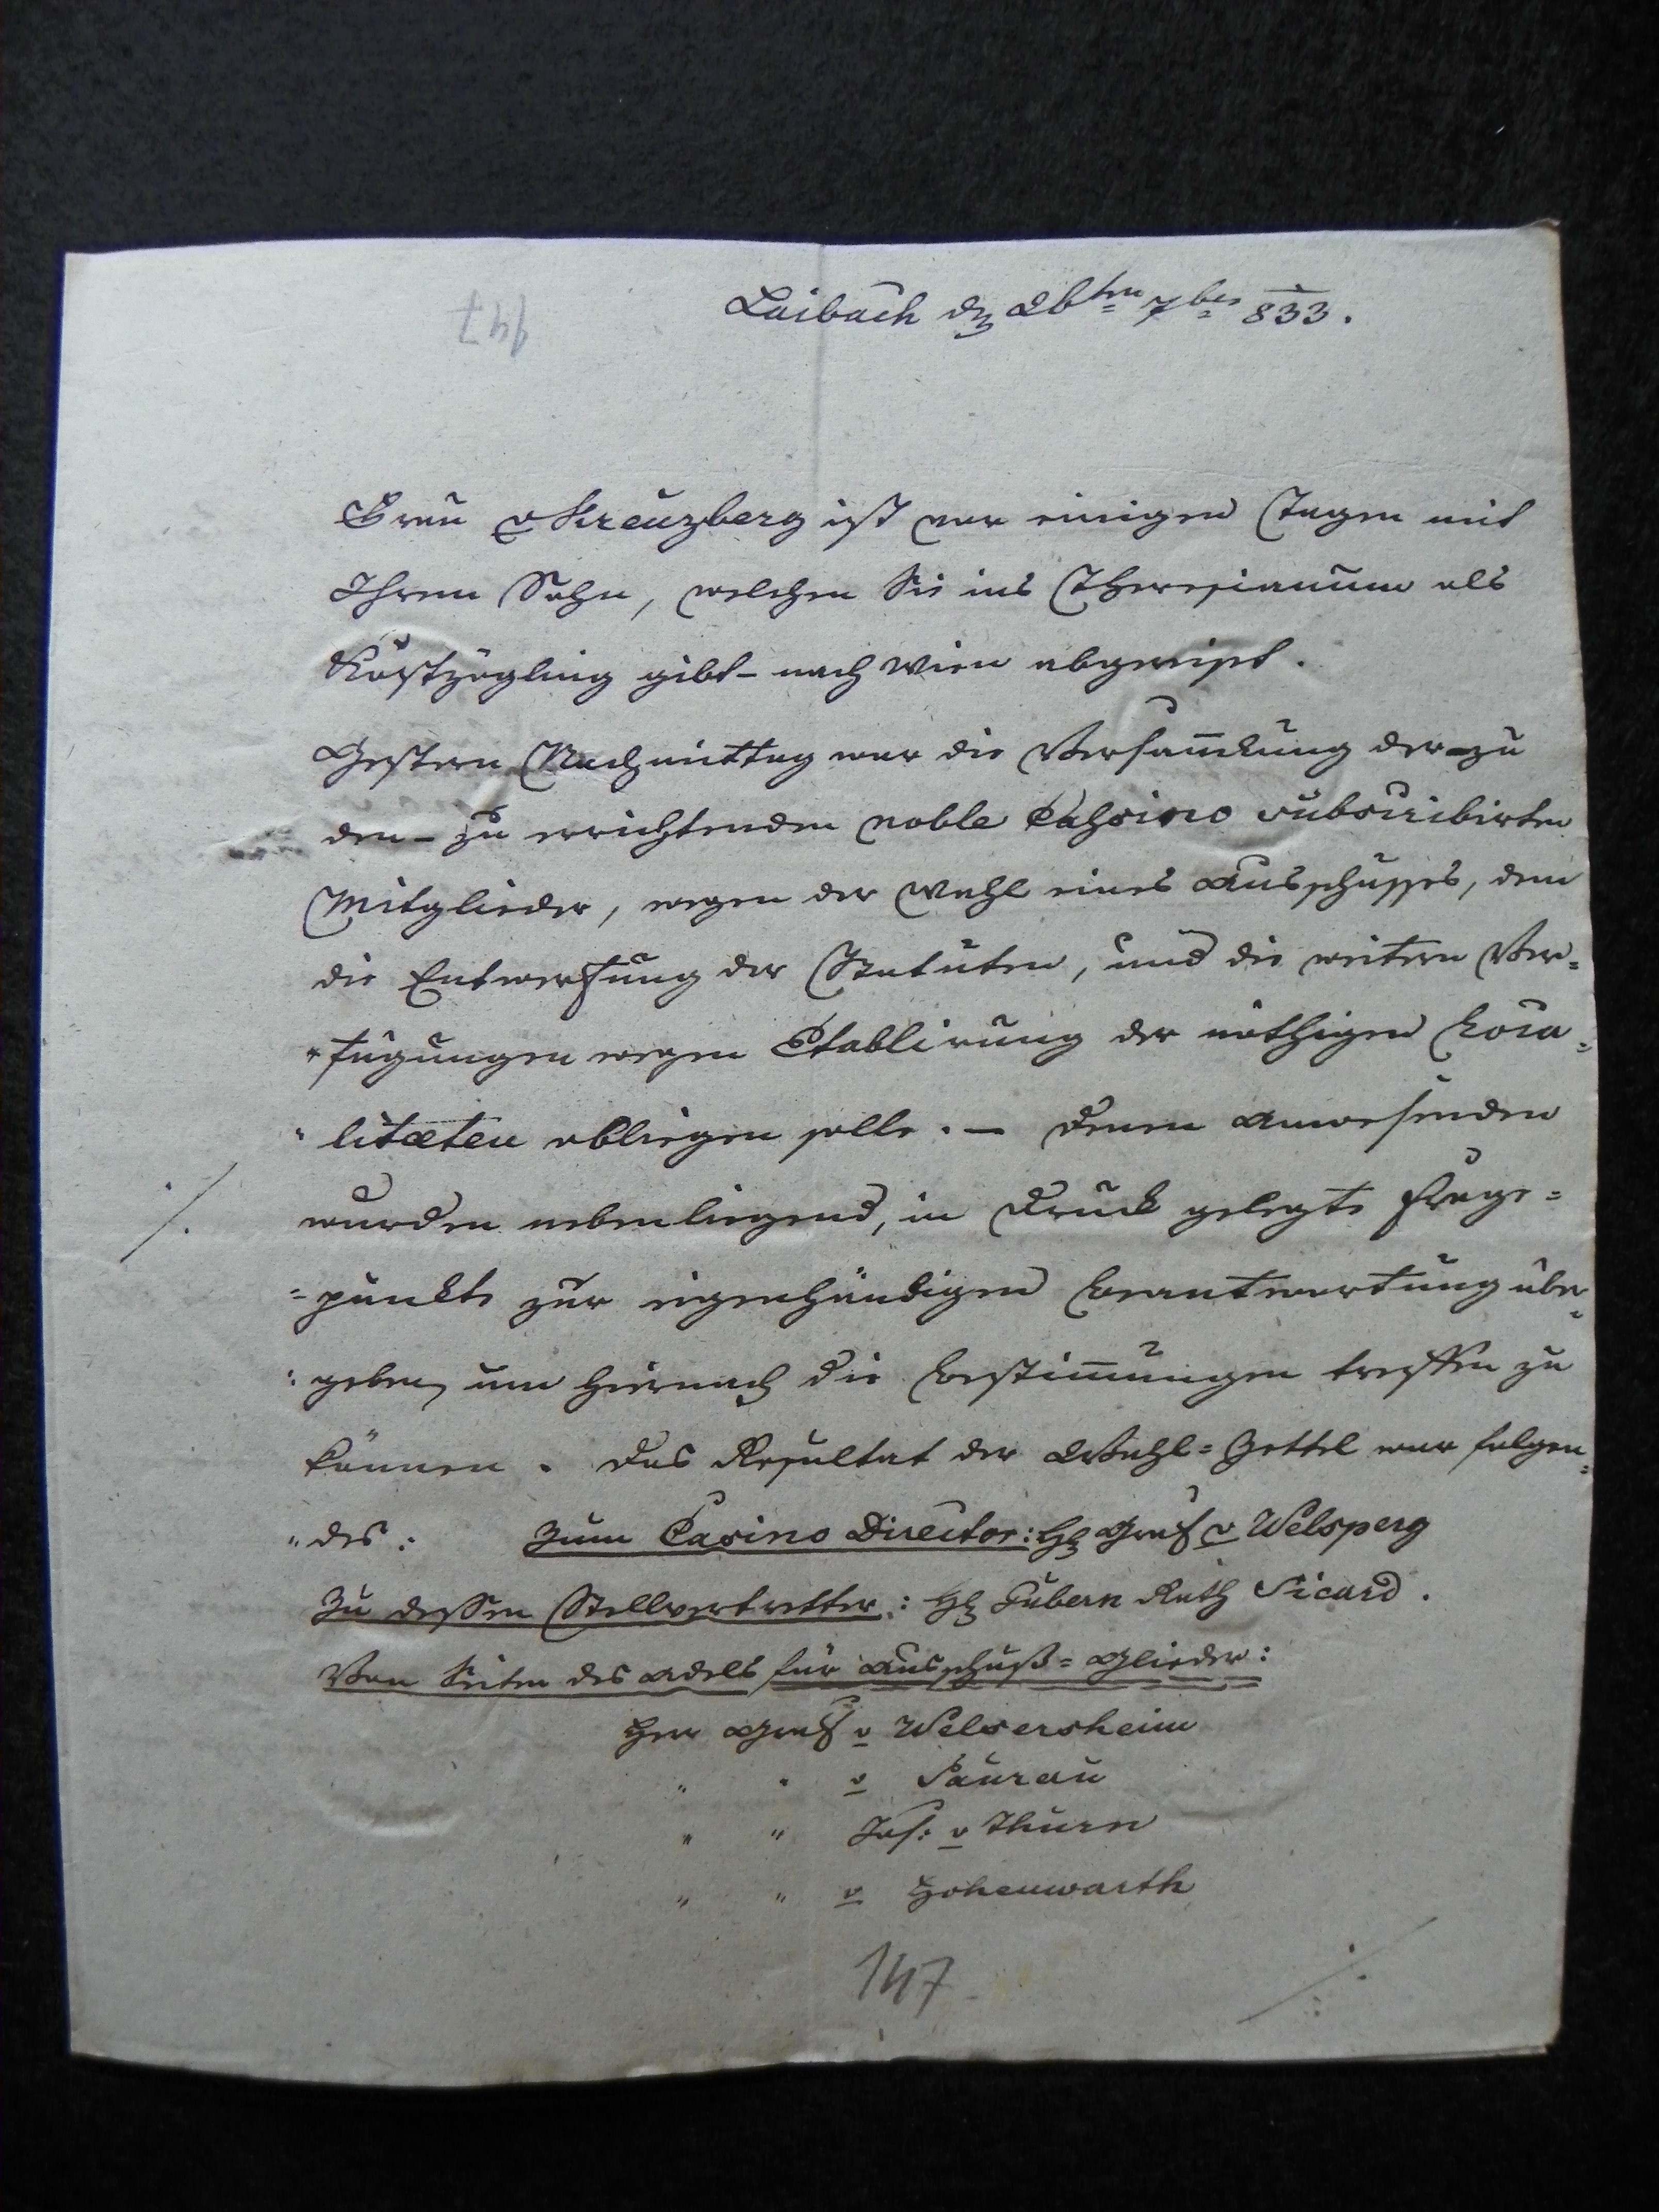 Laibach den 26ten 7ber 833.
147
Frau v Kreuzberg ist vor einigen Tagen mit
Ihrem Sohn, welchen Sie ins Theresianum als
Kostzögling gibt - nach Wien abgereist.
Gestern Nachmittag war die Versam̅lung der-zu
den - zu errichtenden noble Cassino subscribirten
Mitglieder, wegen der Wahl eines Ausschusses, dem
die Entwerfung der Statuten, und die weitern Ver=
"fügungen wegen Etablirung der nöthigen Loca=
"litæten obliegen solle. — Denen Anwesenden
./. wurden nebenliegend, in Druck gelegte Frage=
=punkte zur eigenhändigen Beantwortung über=
"geben, um hiernach die Bestim̅ungen treffen zu
können. Das Resultat der Wahl=Zettel war folgen=
"des: Zum Casino Director: H Graf v Welsperg
Zu dessen Stellvertretter: H Gubern Rath Sicard.
Von Seiten des Adels für Ausschuß=Glieder:
Herr Graf v Welsersheim
" " v Saurau
" " Jos: v Thurn
" " v Hohenwarth
147 ./.